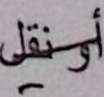 أو نقل